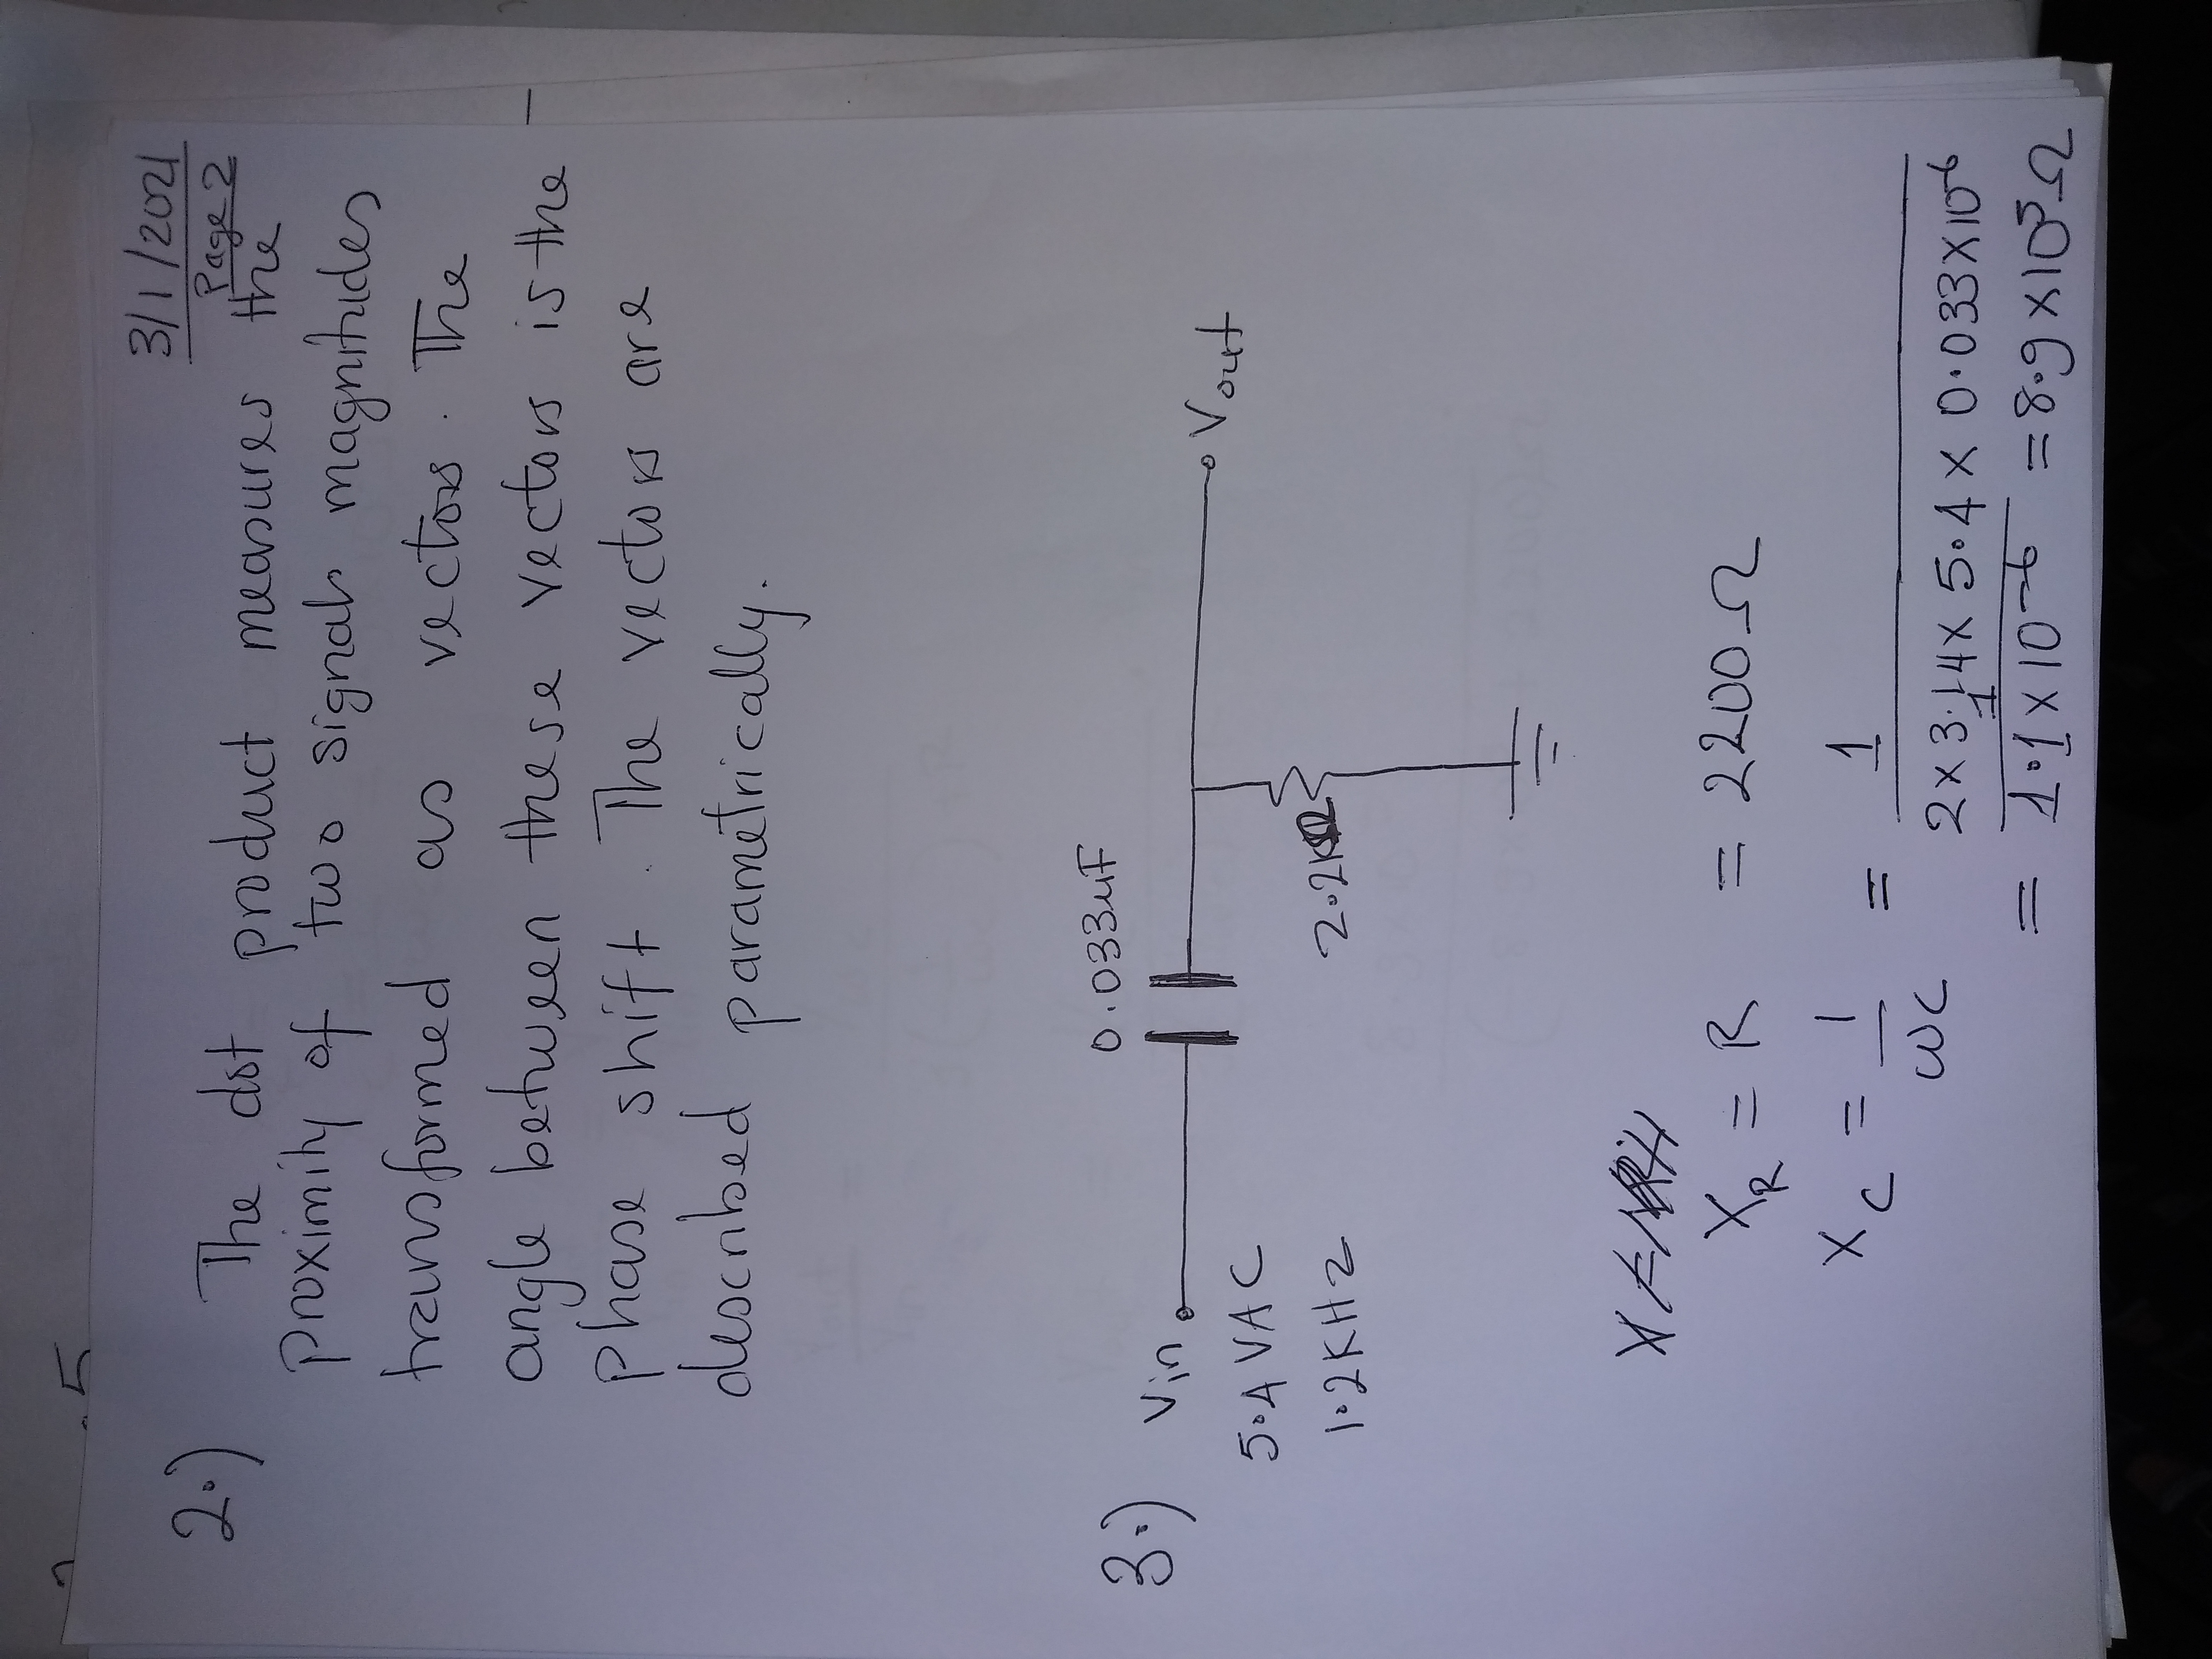 5
3/1/2021
Page 2
2.) The dot product measures the
proximity of two signals magnitudes
transformed as vectors. The
angle between these vectors is the
phase shift. The vectors are
described parametrically.
3.)
0.033uF
Vin
Vout
5.4 VAC
1.2KHz
2.2KΩ
X_R = R = 2200Ω
X_C = 1/ωC = 1/(2 x 3.14 x 5.4 x 0.033 x 10^-6)
= 1/(1.1 x 10^-6) = 8.9 x 10^5 Ω